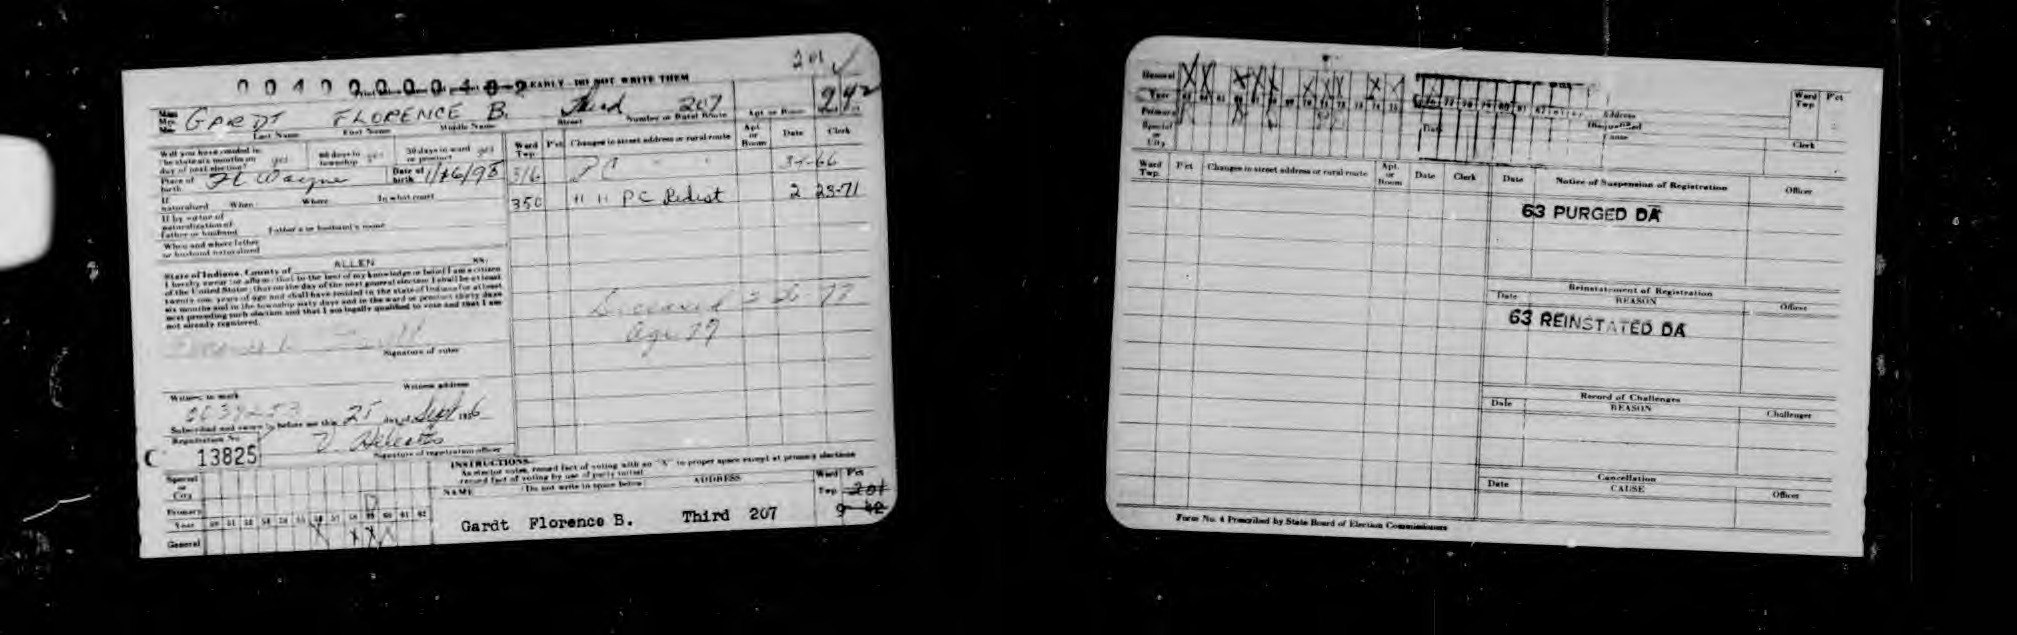 201 ✓
0 0 4 0 0 0 0 0 4 0 2 EARLY - DO NOT WRITE THEM
GARDT FLORENCE B. Third 207 242
Last Name First Name Middle Name Street Number or Rural Route Apt. or Room
Will you have resided in: The state six months on day of next election? yes 60 days in township yes 30 days in ward or precinct yes
Ward Twp. P'ct Changes in street address or rural route Apt. or Room Date Clerk
Place of birth Ft Wayne Date of birth
316 PC
350 " " PC Redist 2 23-71
If naturalized When Where In what court
If by virtue of naturalization of father or husband Father's or husband's name
When and where father or husband naturalized
State of Indiana, County of ALLEN SS:
I hereby swear (or affirm) that to the best of my knowledge or belief I am a citizen
of the United States; that on the day of the next general election I shall be at least
twenty one years of age and shall have resided in the state of Indiana for at least
six months and in the township sixty days and in the ward or precinct thirty days
next preceding such election and that I am legally qualified to vote and that I am
not already registered.
Deceased
age 79
Signature of voter
Witness address
Witness to mark
Subscribed and sworn to before me this 25 day of Sept 1956
Registration No.
C 13825
Signature of registration officer
INSTRUCTIONS
As elector votes, record fact of voting with an "X" in proper space except at primary elections
record fact of voting by use of party initial.
NAME (Do not write in space below) ADDRESS Ward Twp P'ct
Special or City
Primary
Year 50 51 52 53 54 55 56 57 58 59 60 61 62
General
201
Gardt Florence B. Third 207 9 42
General
Year
Primary
Special or City
Address
Name
Ward Twp P'ct
Clerk
Ward Twp. P'ct Changes in street address or rural route Apt. or Room Date Clerk Date Notice of Suspension of Registration Officer
63 PURGED DA
Reinstatement of Registration
Date REASON Officer
63 REINSTATED DA
Record of Challenges
Date REASON Challenger
Cancellation
Date CAUSE Officer
Form No. 4 Prescribed by State Board of Election Commissioners